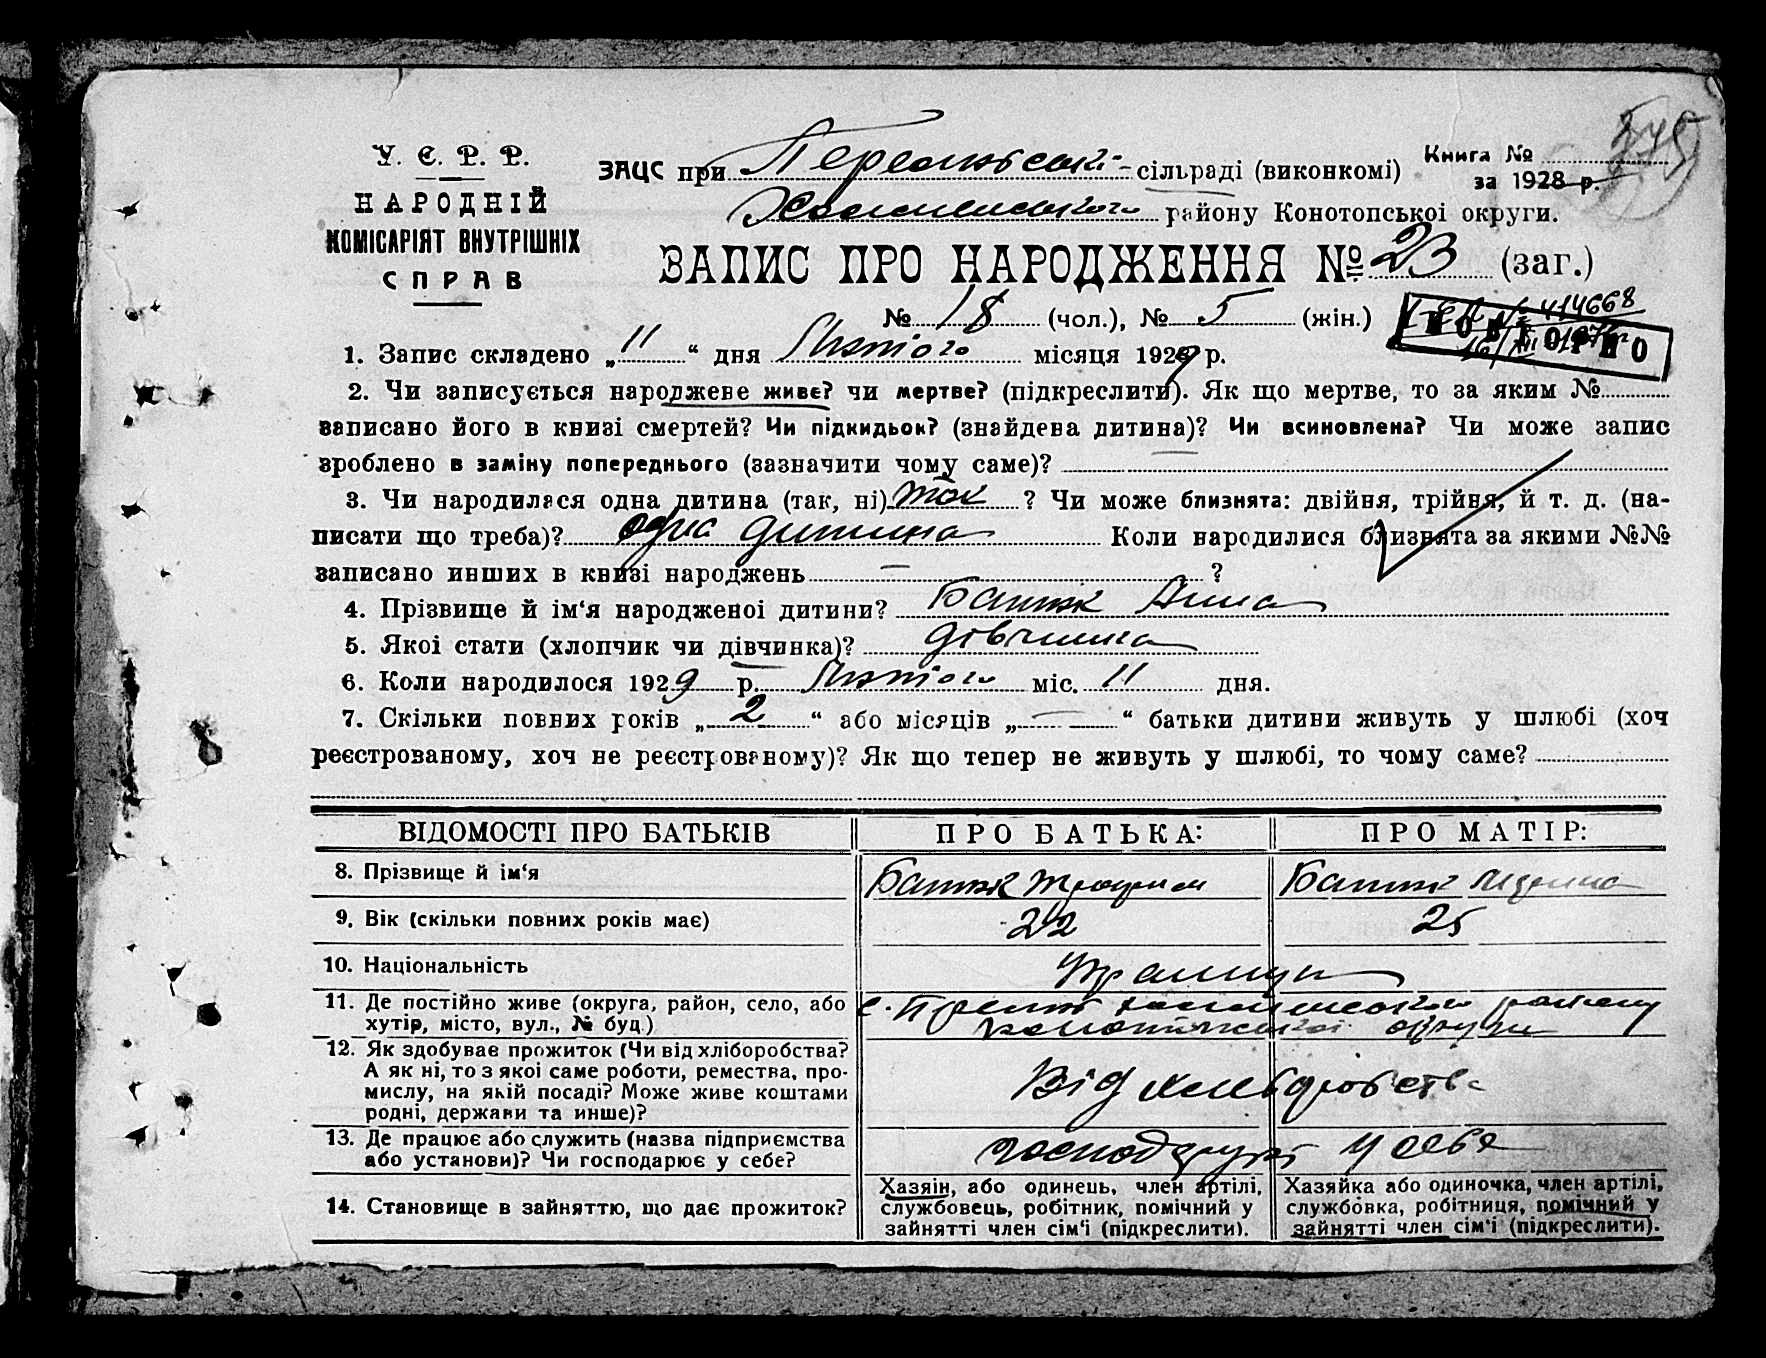 У. С. Р. Р.
НАРОДНІЙ
КОМІСАРІЯТ ВНУТРІШНІХ
СПРАВ
ЗАЦС при сільраді (виконкомі)
Книга №
за 1928 р.
району Конотопської округи.
ЗАПИС ПРО НАРОДЖЕННЯ № 23 (заг.)
№ 18 (чол.), № 5 (жін.)
414668
ПОВТОРНО
1. Запис складено „ 11 “ дня Лютого місяця 1929 р.
2. Чи записується народжене живе? чи мертве? (підкреслити). Як що мертве, то за яким №
записано його в книзі смертей? Чи підкидьок? (знайдена дитина)? Чи всиновлена? Чи може запис
зроблено в заміну попереднього (зазначити чому саме)?
3. Чи народилася одна дитина (так, ні) так ? Чи може близнята: двійня, трійня, й т. д. (на-
писати що треба)? одна дитина Коли народилися близнята за якими №№
записано инших в книзі народжень — ?
4. Прізвище й ім‘я народженої дитини? Анна
5. Якої стати (хлопчик чи дівчинка)? дівчинка
6. Коли народилося 1929 р. Лютого міс. 11 дня.
7. Скільки повних років „ 2 “ або місяців „ — “ батьки дитини живуть у шлюбі (хоч
реєстрованому, хоч не реєстрованому)? Як що тепер не живуть у шлюбі, то чому саме?
ВІДОМОСТІ ПРО БАТЬКІВ ПРО БАТЬКА: ПРО МАТІР:
8. Прізвище й ім‘я
9. Вік (скільки повних років має) 22 25
10. Національність Українці
11. Де постійно живе (округа, район, село, або
хутір, місто, вул., № буд.)
с. району
Конотопської округи
12. Як здобуває прожиток (Чи від хліборобства?
А як ні, то з якої саме роботи, ремества, про-
мислу, на якій посаді? Може живе коштами
родні, держави та инше)?
Від хліборобства
13. Де працює або служить (назва підприємства
або установи)? Чи господарює у себе?
у себе
14. Становище в зайняттю, що дає прожиток?
Хазяїн, або одинець, член артілі,
службовець, робітник, помічний у
зайнятті член сім‘ї (підкреслити).
Хазяйка або одиночка, член артілі,
службовка, робітниця, помічний у
зайнятті член сім‘ї (підкреслити).